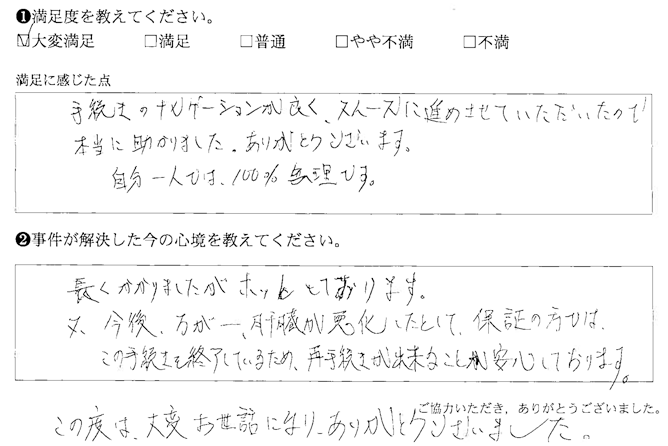 ❶満足度を教えてください。
☑大変満足 □満足 □普通 □やや不満 □不満
満足に感じた点
手続きのナビゲーションが良く、スムーズに進めさせていただいたので
本当に助かりました。ありがとうございます。
自分一人では、100% 無理です。
❷事件が解決した今の心境を教えてください。
長くかかりましたがホッとしております。
又、今後、万が一、肝臓が悪化したとして、保証の方では、
この手続きを終了しているため、再手続きが出来ることが安心しております。
ご協力いただき、ありがとうございました。
この度は、大変お世話になり、ありがとうございました。